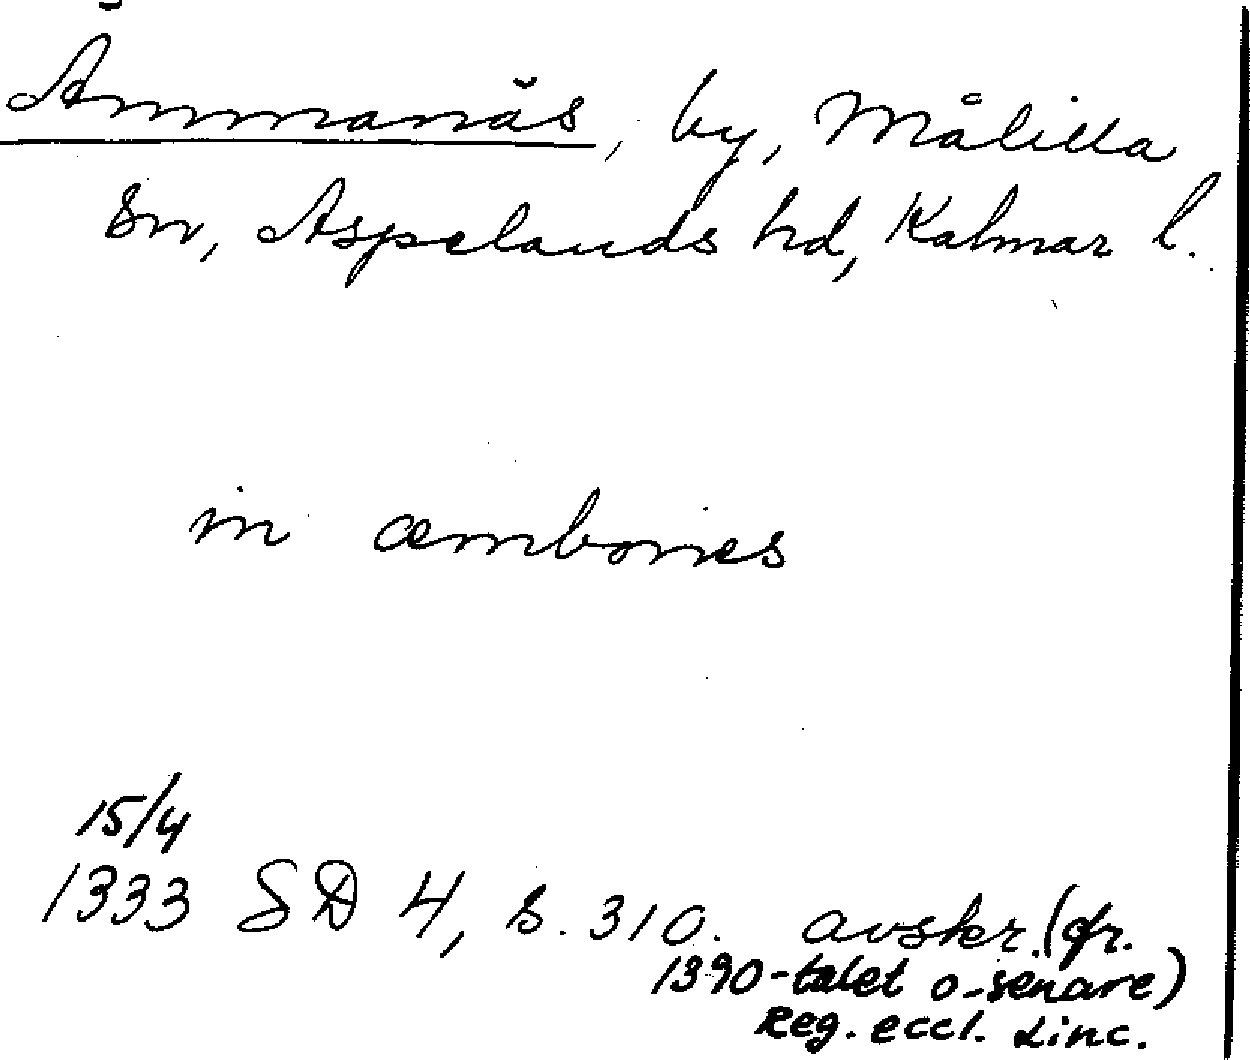 Ämmanäs, by, Målilla
sn, Aspelands hd, Kalmar l.
in æmbornes
15/4
1333 SD 4, s. 310. avskr. (fr.
1390-talet o-senare)
Reg. eccl. Linc.